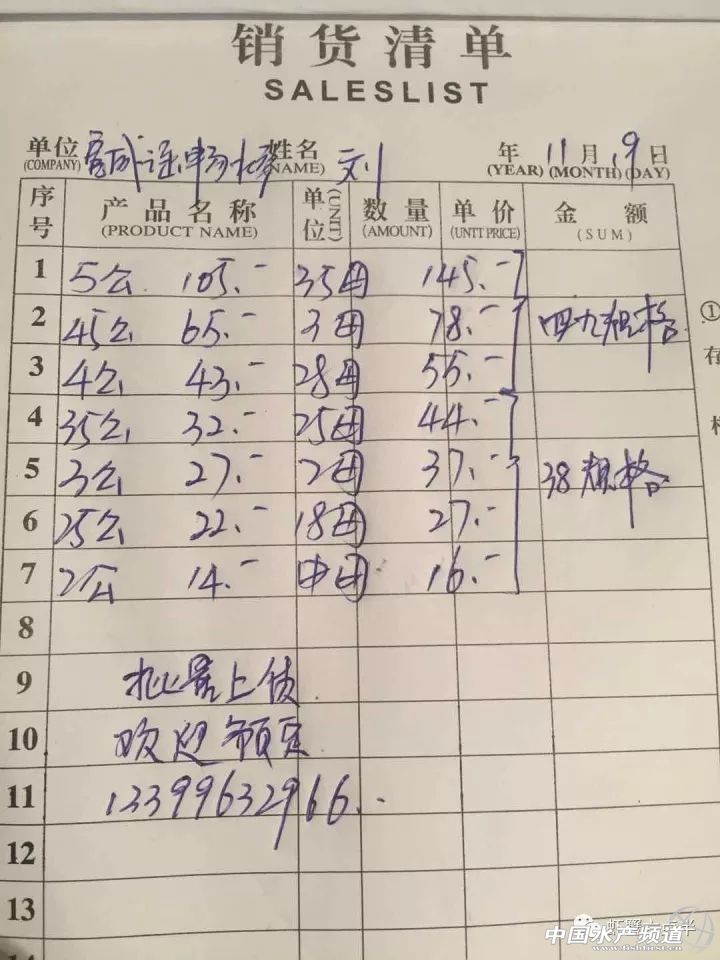 销货清单
SALESLIST
单位 姓名 刘 年 11月 9日
(COMPANY) (NAME) (YEAR) (MONTH) (DAY)
序号 产品名称 单位 数量 单价 金额
(PRODUCT NAME) (UNIT) (AMOUNT) (UNTT PRICE) (SUM)
1 5公 105.- 35母 145.-
2 45公 65.- 3母 78.- 四九规格
3 4公 43.- 28母 55.-
4 35公 32.- 25母 44.-
5 3公 27.- 2母 37.- 38规格
6 25公 22.- 18母 27.-
7 2公 14.- 中母 16.-
8
9 批量上货
10 欢迎预定
11 13399632966
12
13
14
①
存
中国水产频道
www.fishfirst.cn